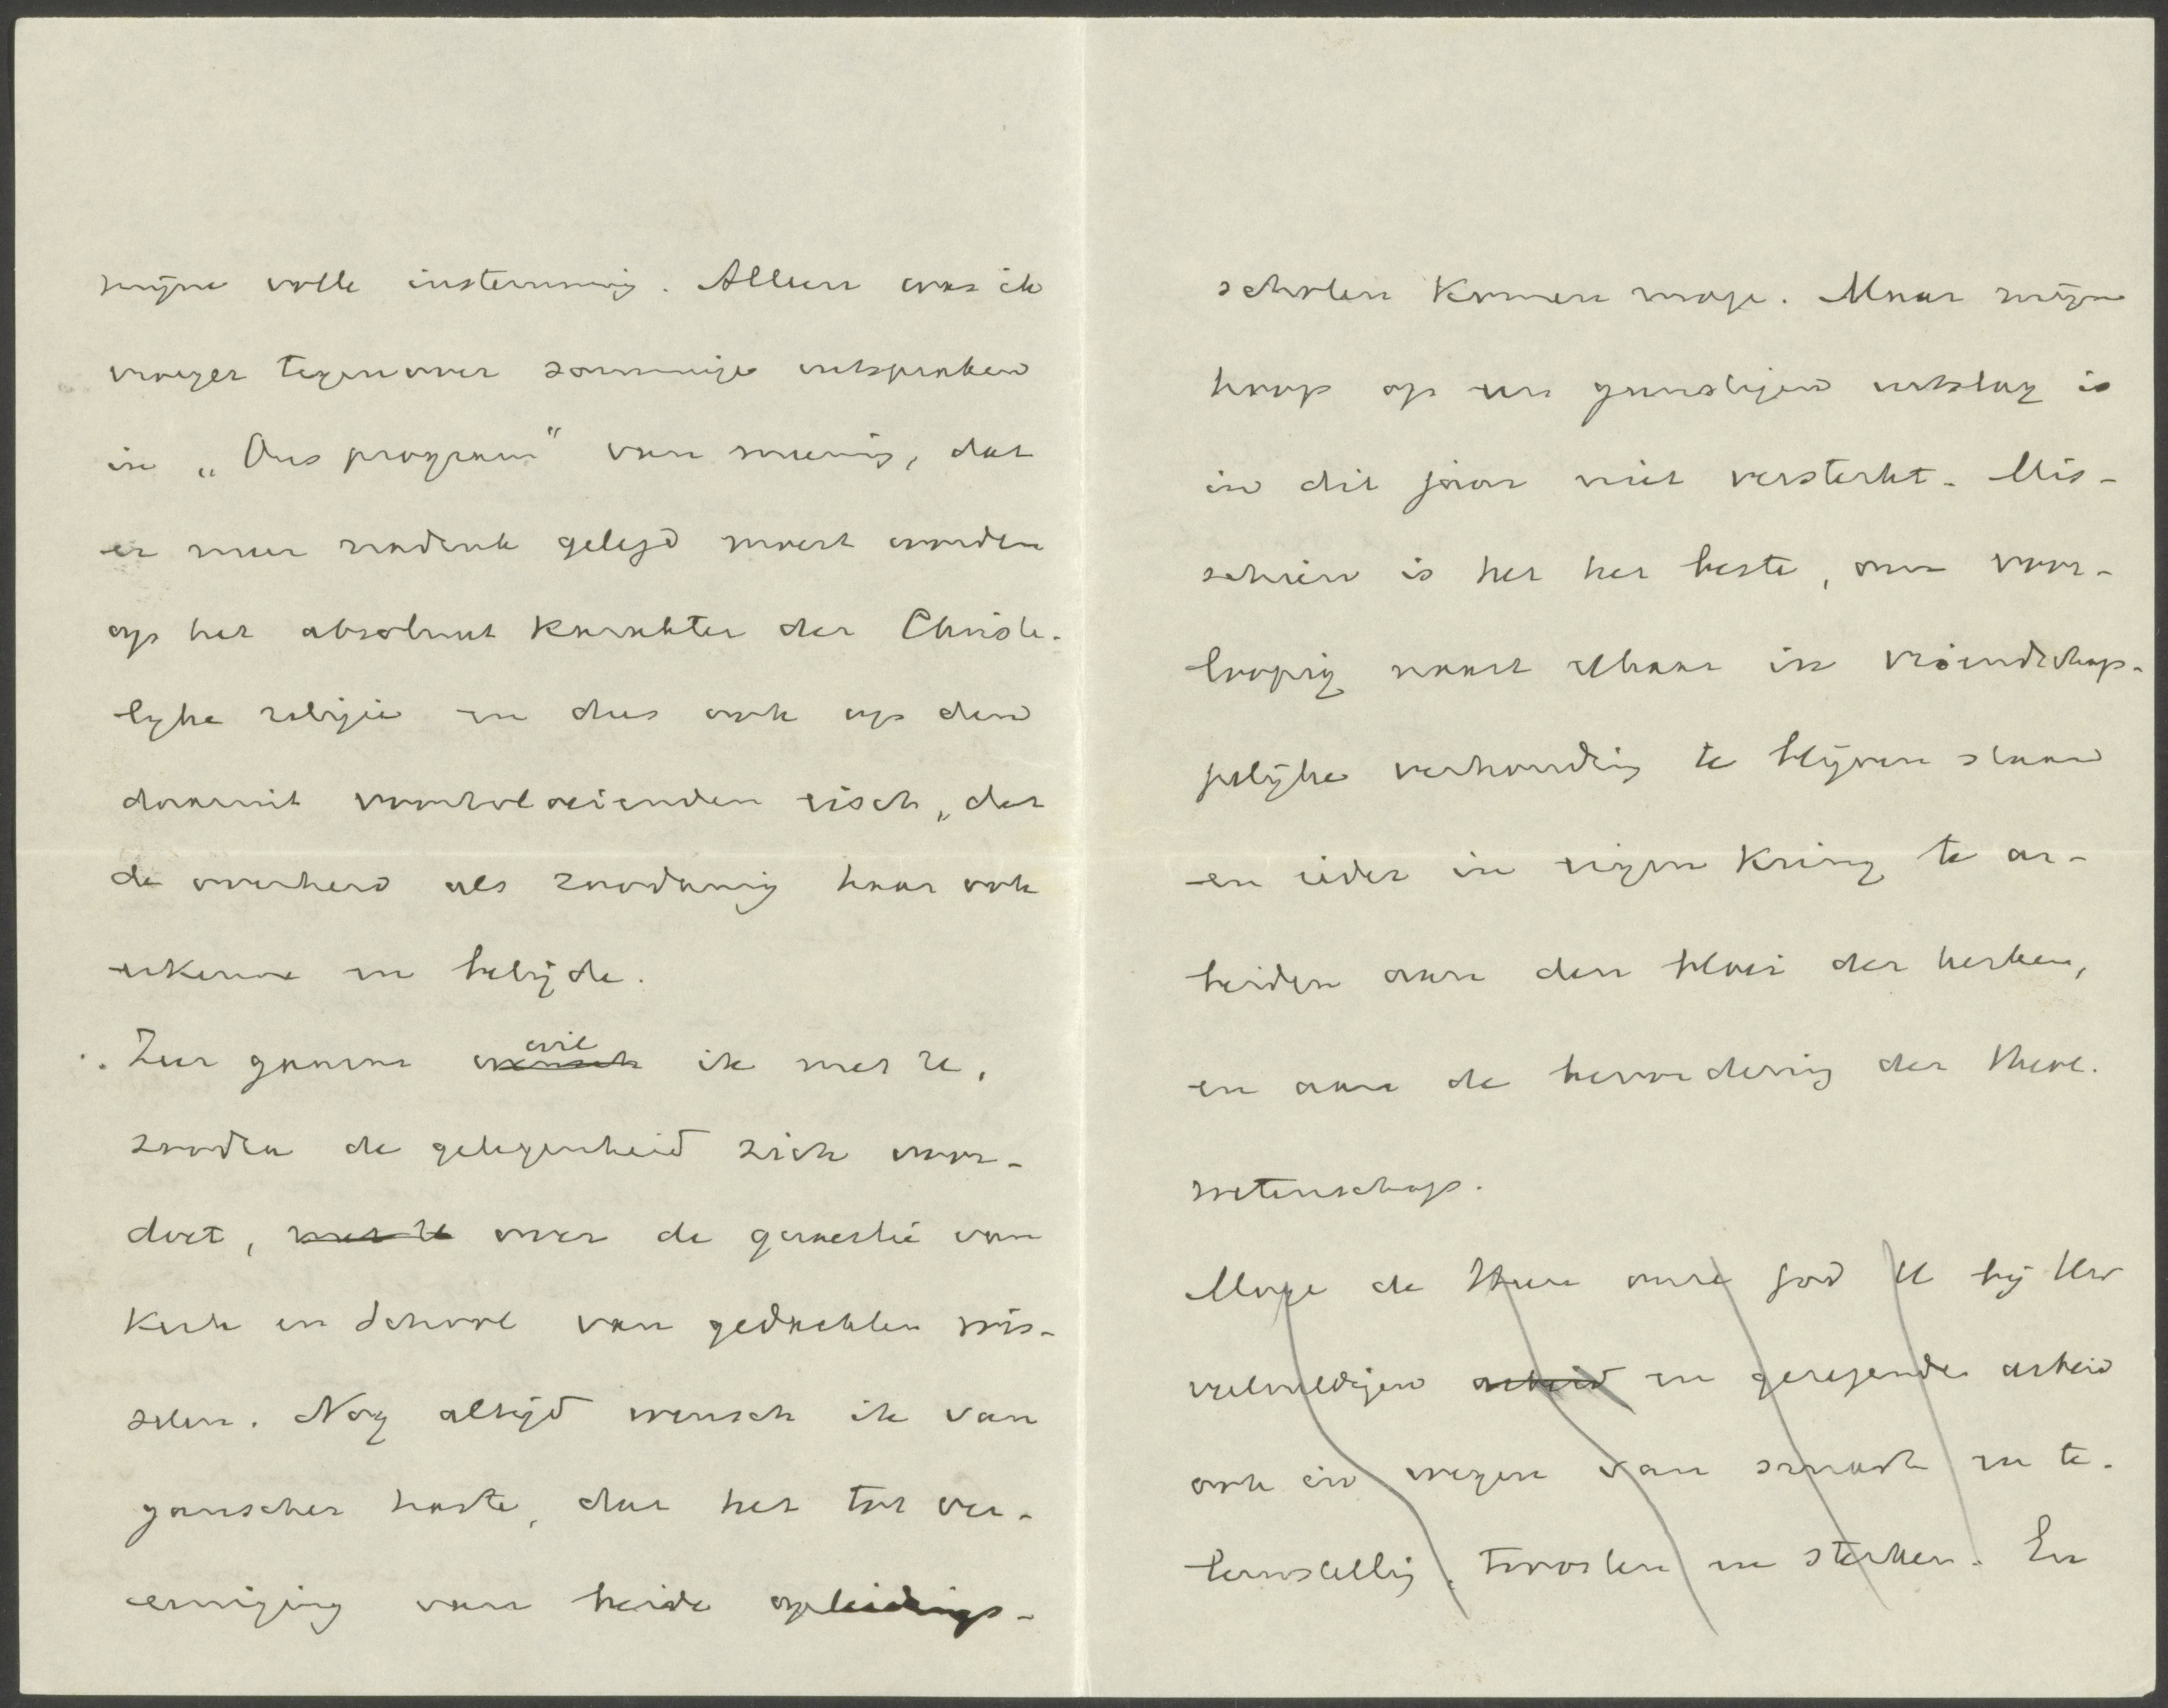 mijne volle instemming. Alleen was ik
vroeger tegenover sommige uitspraken
in „Ons program" van meening, dat
er meer nadruk gelegd moest worden
op het absoluut karakter der Christe-
lijke religie en dus ook op den
daaruit voortvloeienden eisch, dat
de overheid als zoodanig haar ook
erkenne en belijde.
Zeer gaarne wensch wil ik met U,
zoodra de gelegenheid zich voor-
doet, met U over de quaestie van
Kerk en School van gedachten wis-
selen. Nog altijd wensch ik van
ganscher harte, dat het tot ver-
eeniging van beide opleidings-
scholen komen moge. Maar mijne
hoop op een gunstigen uitslag is
in dit jaar niet versterkt. Mis-
schien is het het beste, om voor-
loopig naast elkaar in vriendschap-
pelijke verhouding te blijven staan
en ieder in eigen kring te ar-
beiden aan den bloei der kerken,
en aan de bevordering der theol.
wetenschap.
Moge de Heere onze God U bij Uw
veelvuldigen arbeid en gezegende arbeid
ook in wegen van smart en te-
leurstelling, troosten en sterken. En